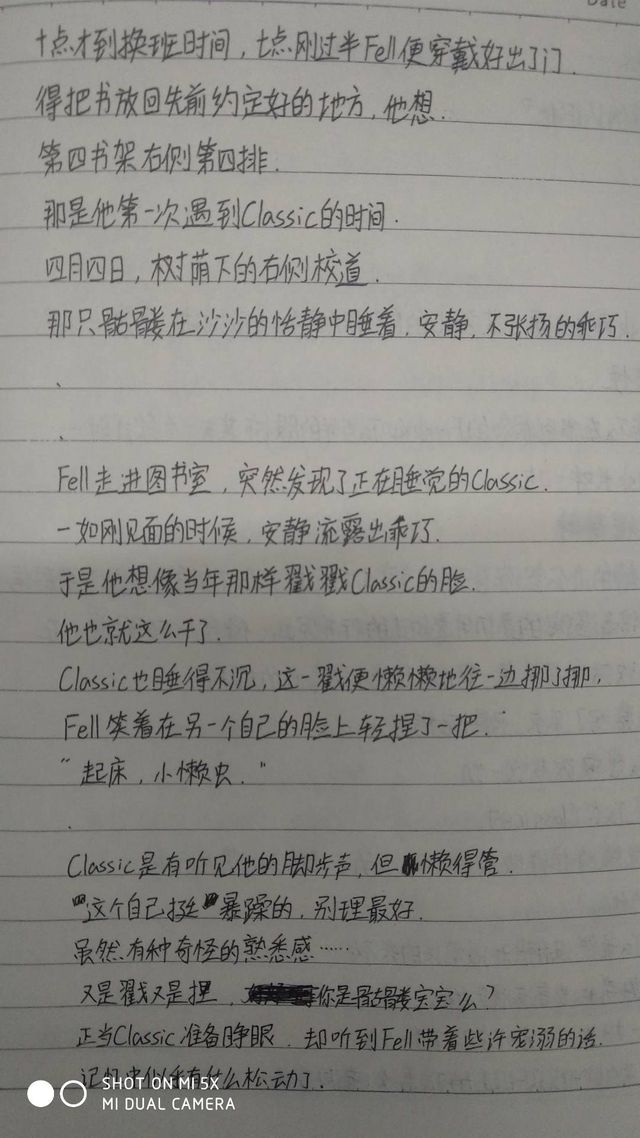 Date
十点才到换班时间，七点刚过半Fell便穿戴好出了门.
得把书放回先前约定好的地方，他想.
第四书架右侧第四排.
那是他第一次遇到Classic的时间.
四月四日，树荫下的右侧校道.
那只骷髅在沙沙的恬静中睡着，安静，不张扬的乖巧.
Fell走进图书室，突然发现了正在睡觉的Classic.
一如刚见面的时候，安静流露出乖巧.
于是他想像当年那样戳戳Classic的脸.
他也就这么干了.
Classic也睡得不沉，这一戳便懒懒地往一边挪了挪，
Fell笑着在另一个自己的脸上轻捏了一把.
“起床，小懒虫."
Classic是有听见他的脚步声，但懒得管.
这个自己挺暴躁的，别理最好.
虽然有种奇怪的熟悉感……
又是戳又是捏，你是骷髅宝宝么？
正当Classic准备睁眼，却听到Fell带着些许宠溺的话.
记忆中似乎有什么松动了.
SHOT ON MI 5X
MI DUAL CAMERA